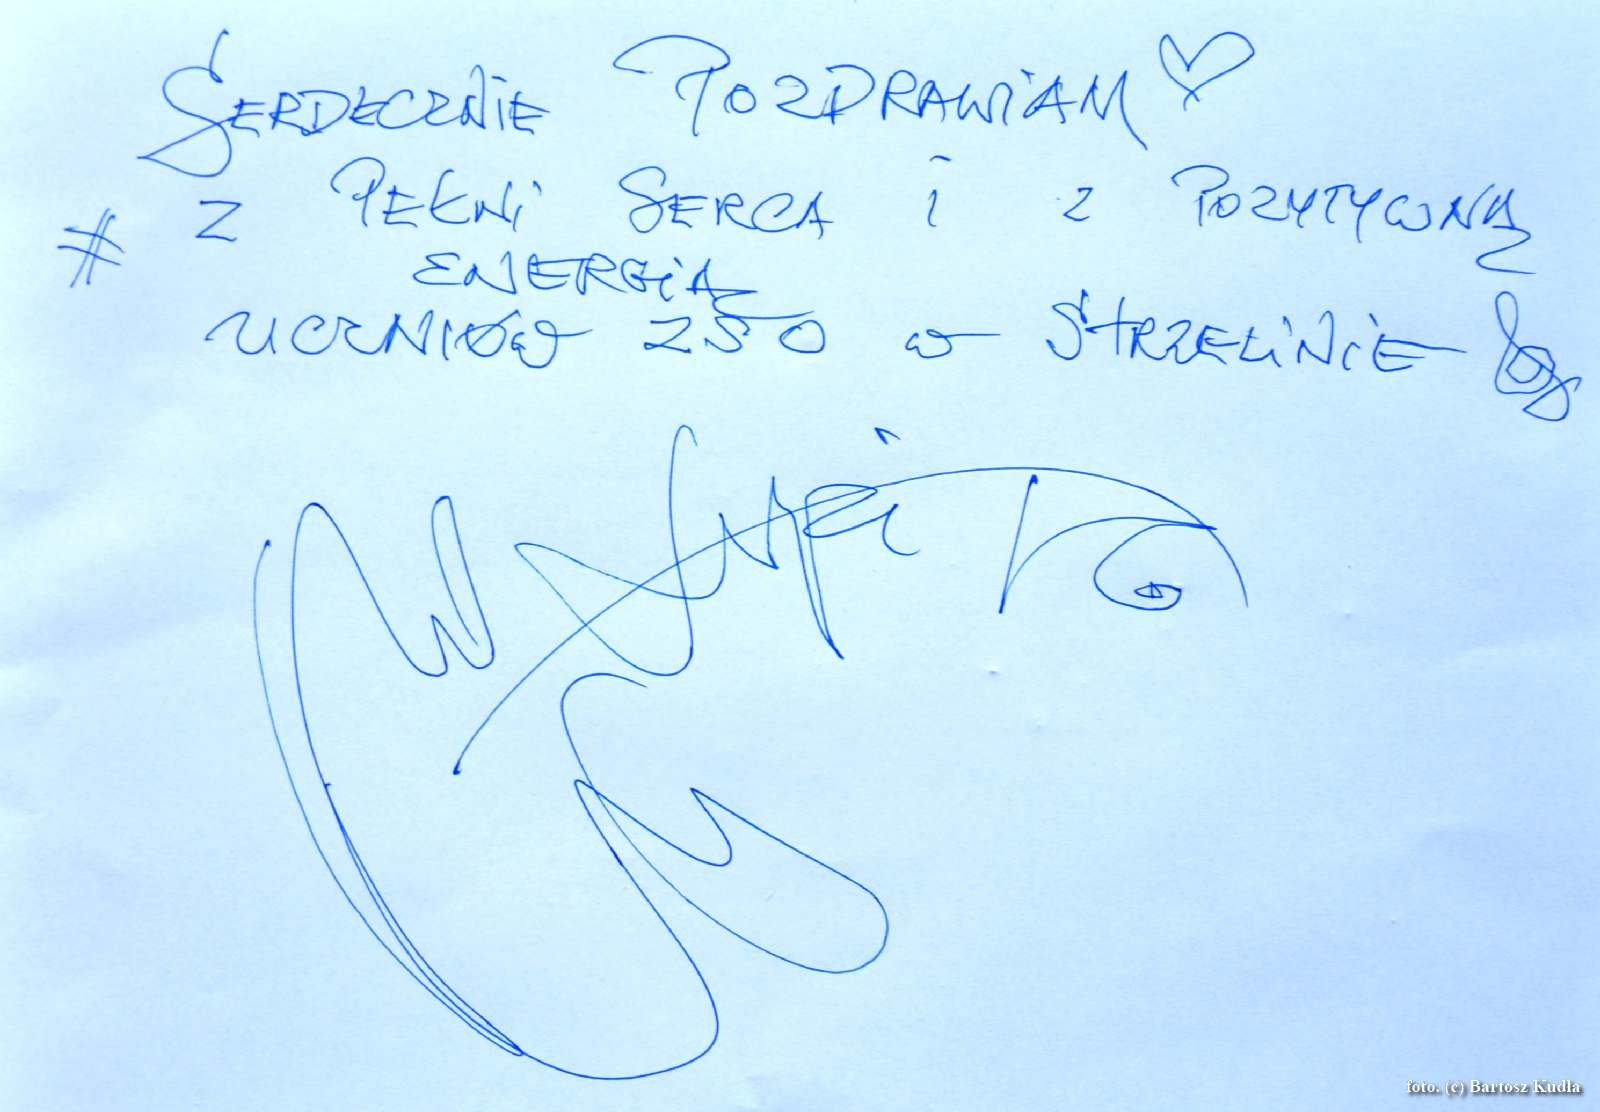 SERDECZNIE POZDRAWIAM
# Z PEŁNI SERCA I Z POZYTYWNĄ
ENERGIĄ
UCZNIÓW ZSO w STRZELINIE
foto. (c) Bartosz Kudła